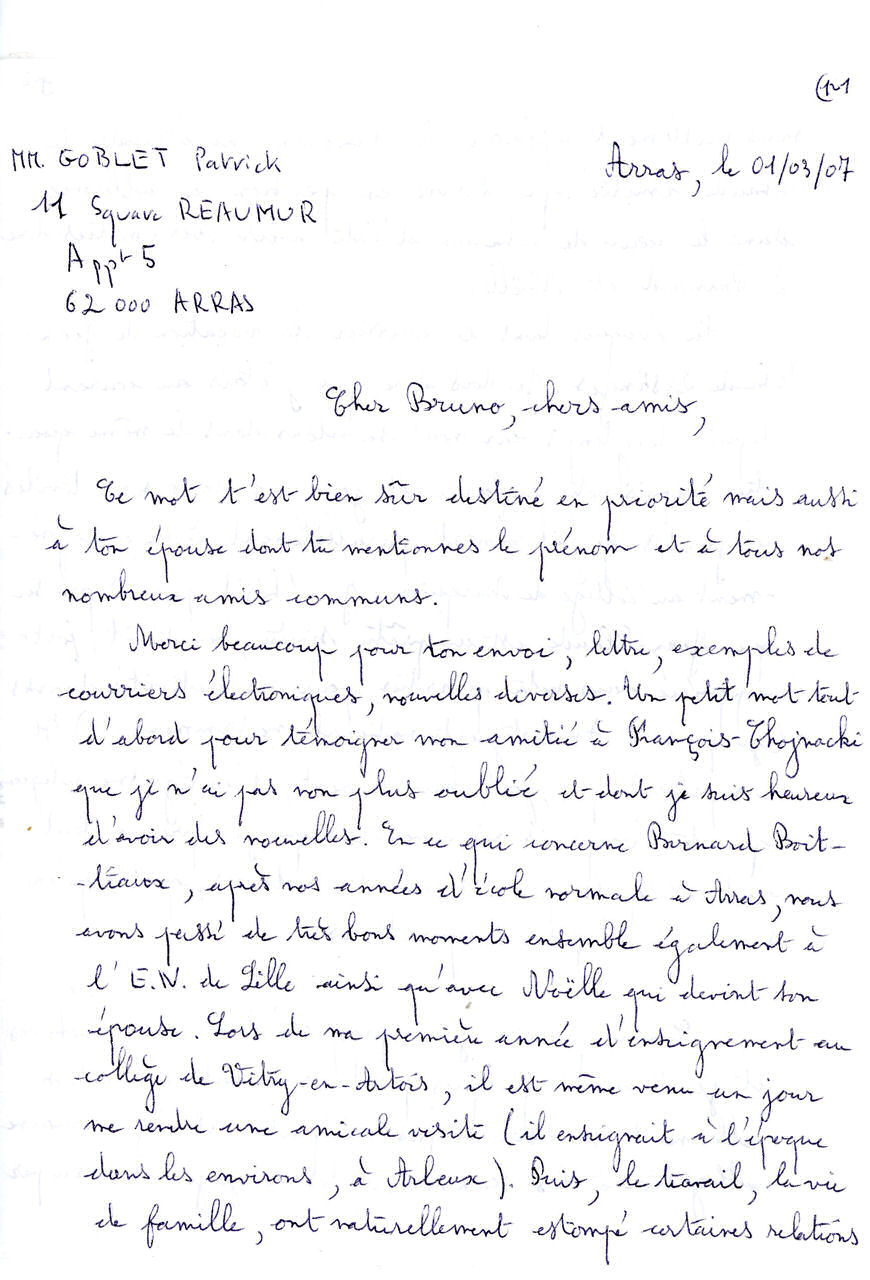 MM. GOBLET Patrick
11 Square REAUMUR
Appt 5
62 000 ARRAS
Arras, le 01/03/07
Cher Bruno, chers amis,
Ce mot t'est bien sûr destiné en priorité mais aussi
à ton épouse dont tu mentionnes le prénom et à tous nos
nombreux amis communs.
Merci beaucoup pour ton envoi, lettre, exemples de
courriers électroniques, nouvelles diverses. Un petit mot tout
d'abord pour témoigner mon amitié à François Chojnacki
que je n'ai pas non plus oublié et dont je suis heureux
d'avoir des nouvelles. En ce qui concerne Bernard Boit-
-tiaux, après nos années d'école normale à Arras, nous
avons passé de très bons moments ensemble également à
l'E.N. de Lille ainsi qu'avec Noëlle qui devint son
épouse. Lors de ma première année d'enseignement au
collège de Vitry-en-Artois, il est même venu un jour
me rendre une amicale visite (il enseignait à l'époque
dans les environs, à Arleux). Puis, le travail, la vie
de famille, ont naturellement estompé certaines relations